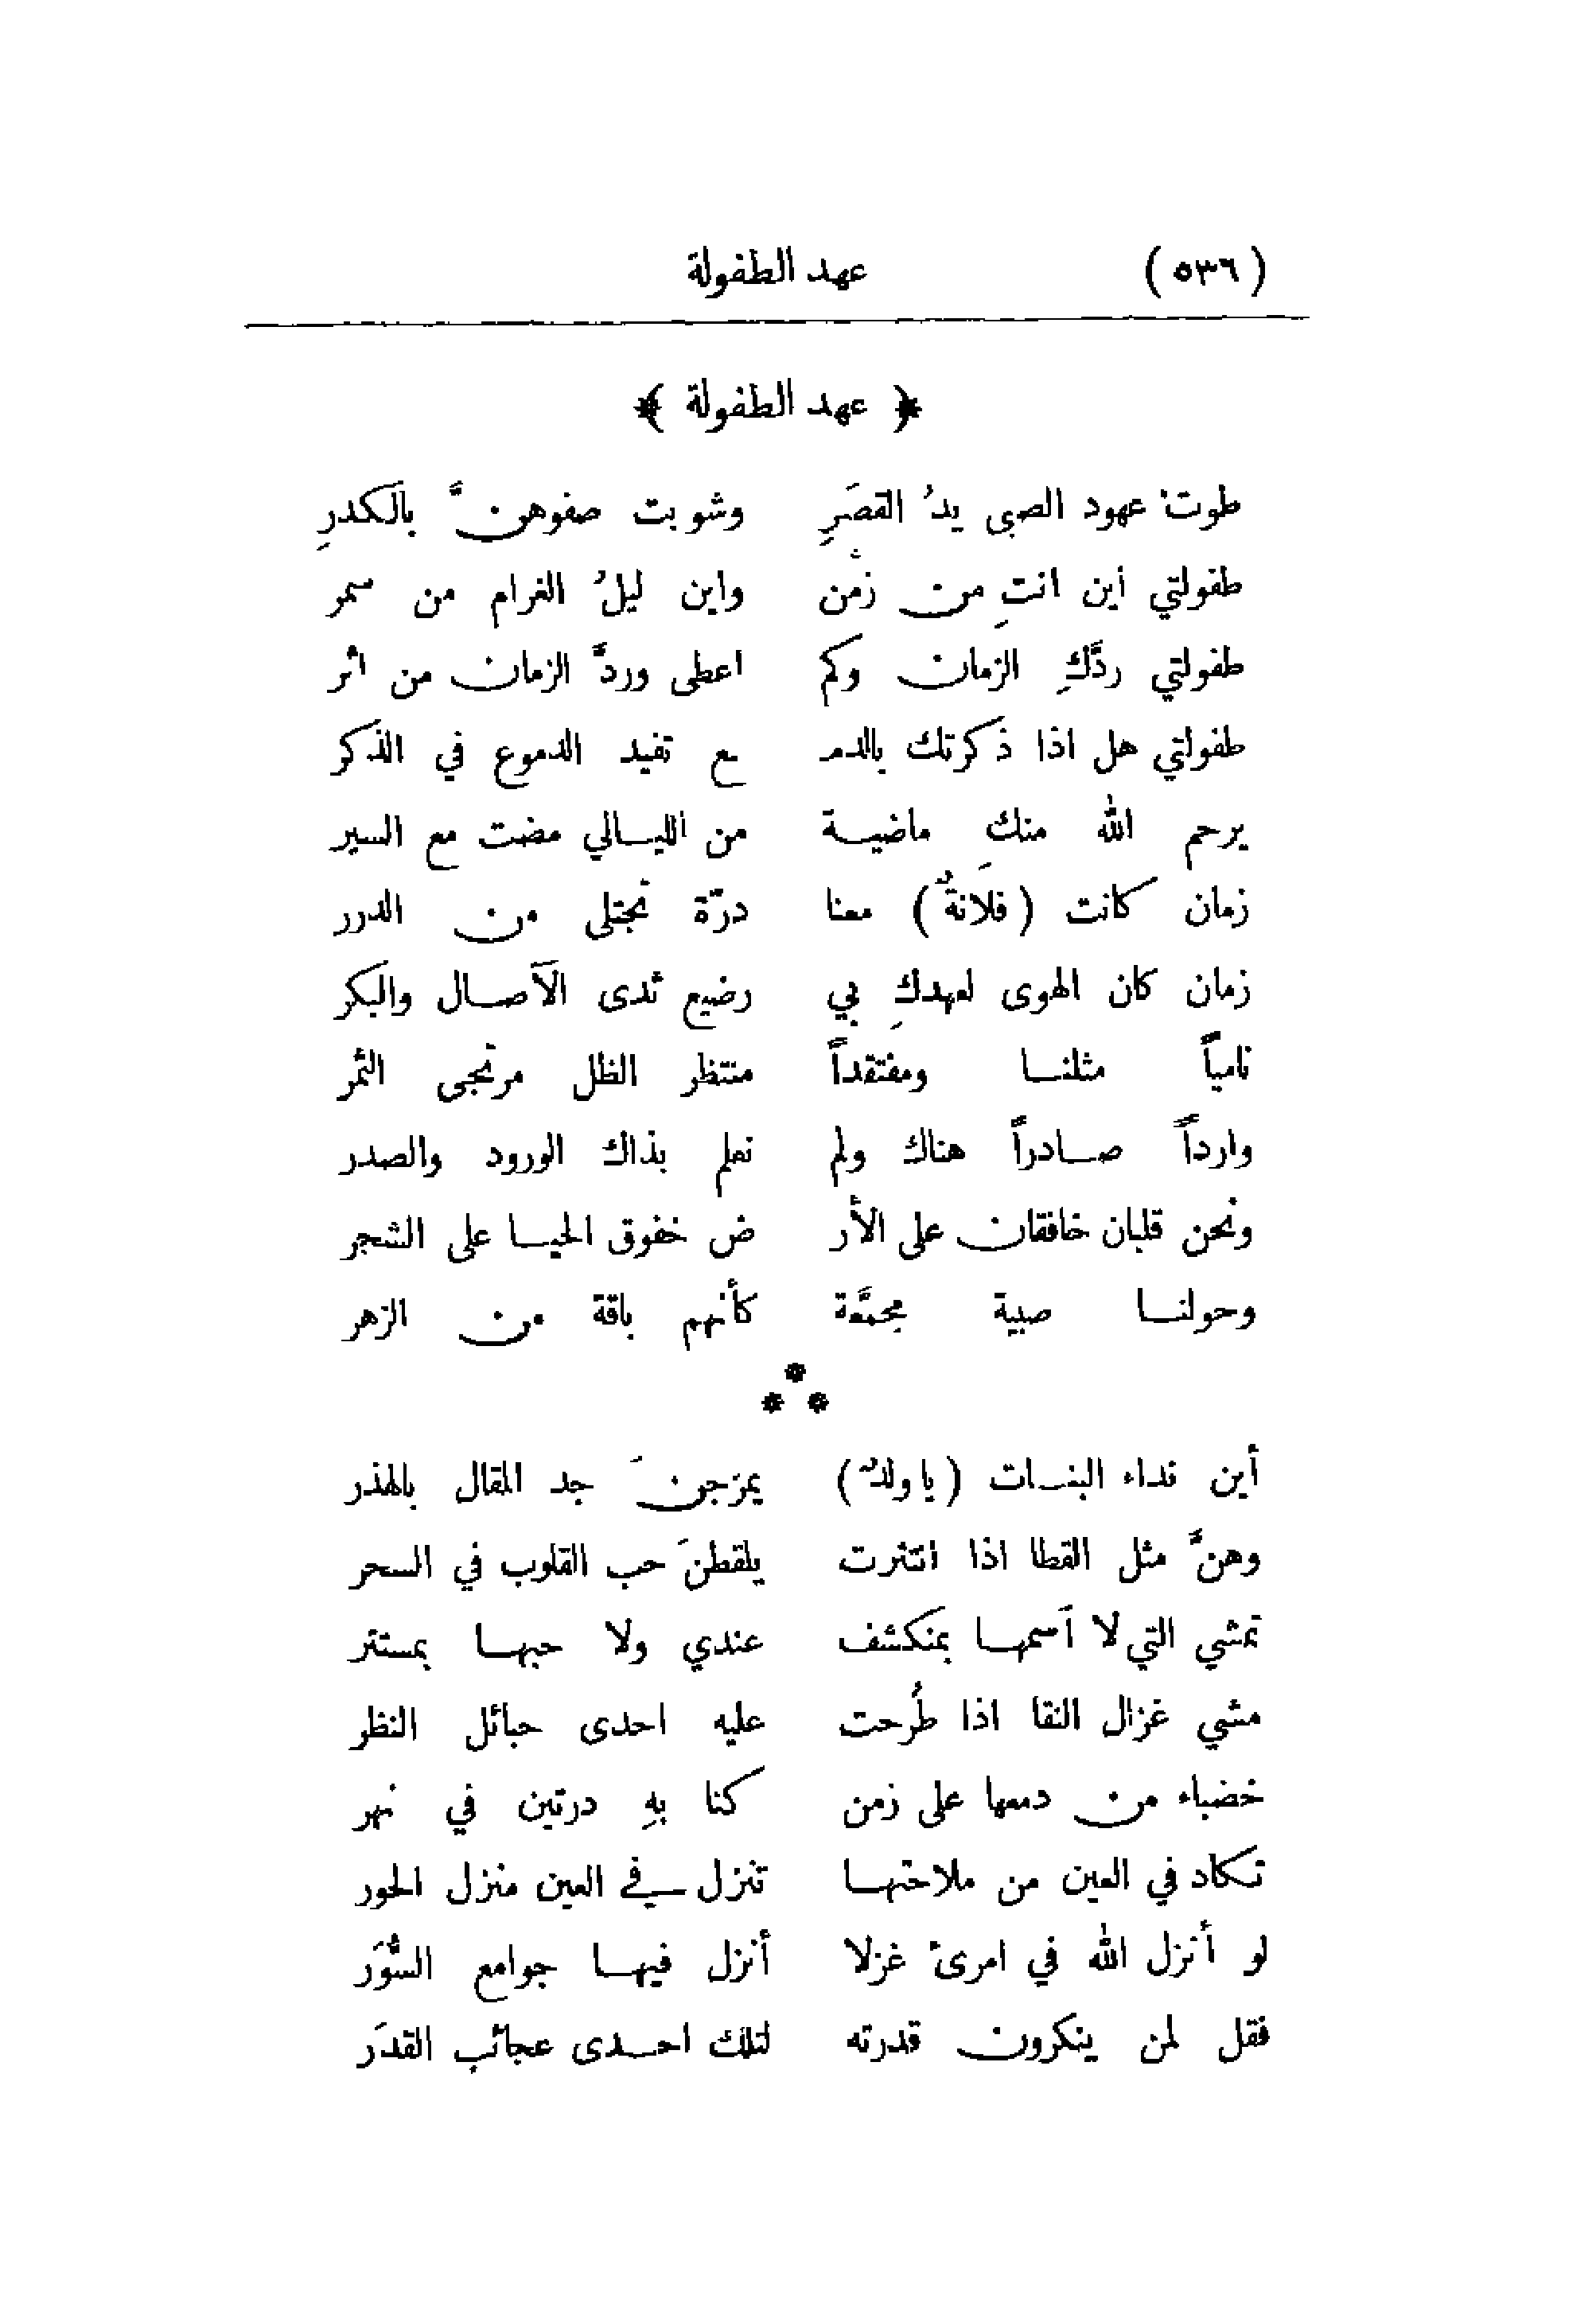 (٥٣٦) عهد الطفولة
﴿ عهد الطفولة ﴾
طوت عهود الصبى يدُ القصَرِ وشوبت صفوهنَّ بالكدرِ
طفولتي أين انتِ من زمن واين ليلُ الغرام من سمر
طفولتي ردَّكِ الزمان وكم اعطى وردَّ الزمان من اثر
طفولتي هل اذا ذكرتك بالدمـ ـع تفيد الدموع في الذكر
يرحم الله منكِ ماضية من الليالي مضت مع السير
زمان كانت (فلانةٌ) معنا درّة تجتلى من الدرر
زمان كان الهوى لعهدكِ بي رضيع ثدى الآصال والبكر
نامياً مثلنا ومفتقداً منتظر الظل مرتجى الثمر
وارداً صادراً هناك ولم نعلم بذاك الورود والصدر
ونحن قلبان خافقان على الأر ض خفوق الحيا على الشجر
وحولنا صبية مجمَّعة كأنهم باقة من الزهر
***
أين نداء البنات (ياولدٌ) يمزجنَ جد المقال بالهذر
وهنَّ مثل القطا اذا انتثرت يلقطنَ حب القلوب في السحر
تمشي التي لا أسمها بمنكشف عندي ولا حبها بمستتر
مشي غزال النقا اذا طُرحت عليه احدى حبائل النظر
خضباء من دمعها على زمن كنا بهِ درتين في نهر
تكاد في العين من ملاحتها تنزل في العين منزل الحور
لو أنزل الله في امرئ غزلا أنزل فيها جوامع السُّوَر
فقل لمن ينكرون قدرته لتلك احدى عجائب القدَر